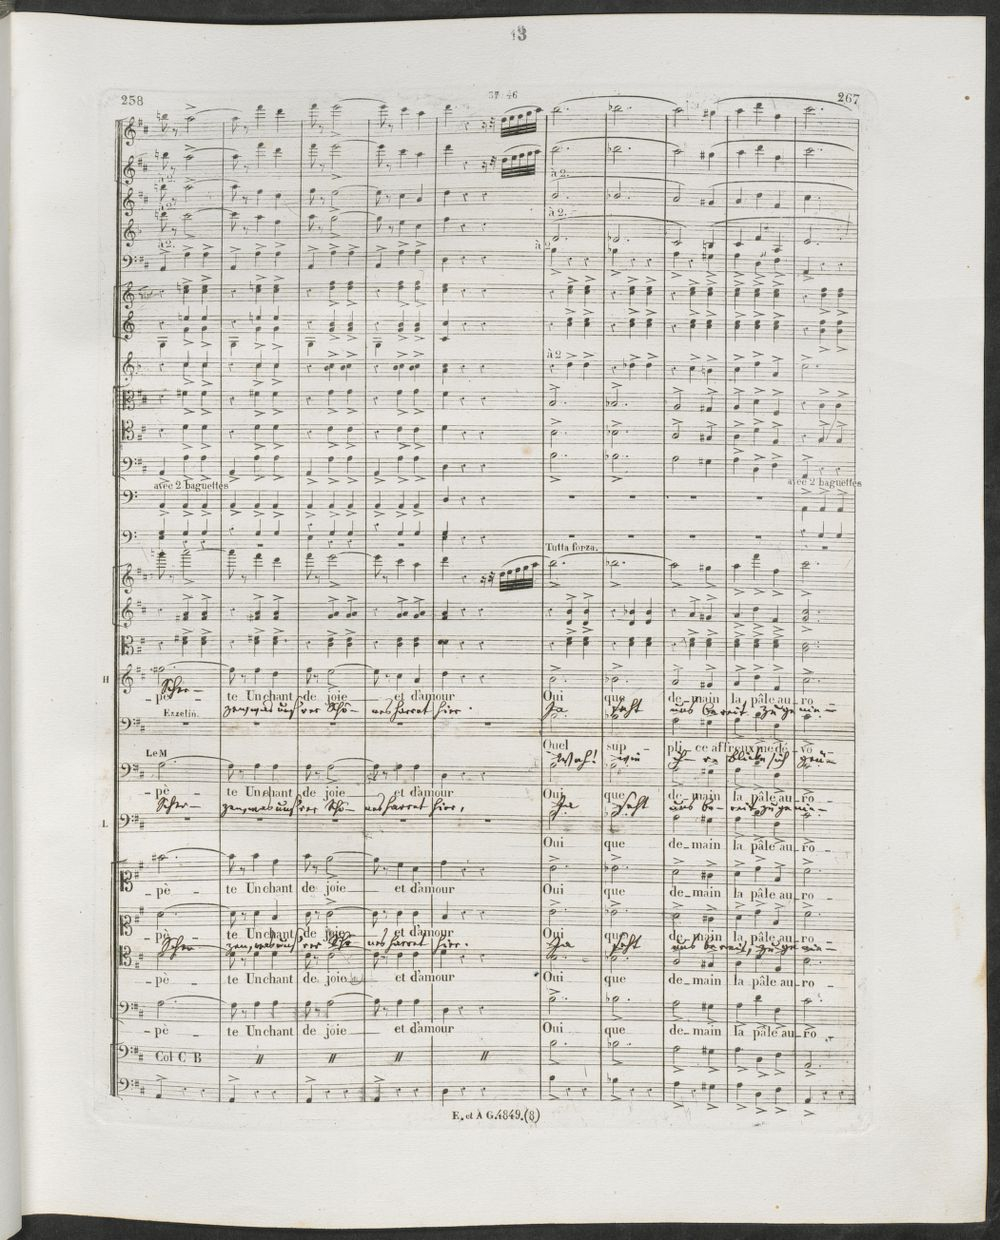 13
258 57 46 267
à 2.
à 2.
à 2.
à 2.
à 2
à 2
avec 2 baguettes avec 2 baguettes
Tutta forza.
H
- pè - te Un chant de joie et d'amour Oui que de_main la pâle au_ro_
Scher- hier. Ja seht uns bereit
Ezzelin.
Quel sup - pli_ce affreux me dé - vo_
Le M
- pè - te Un chant de joie et d'amour Oui que de_main la pâle au_ro_
Scher- hier, Ja seht uns be-reit
L
Oui que de_main la pâle au_ro_
- pè - te Un chant de joie et d'amour Oui que de_main la pâle au_ro_
- pè - te Un chant de joie et d'amour Oui que de_main la pâle au_ro_
hier. Ja seht uns bereit,
- pè - te Un chant de joie et d'amour Oui que de_main la pâle au_ro_
- pè - te Un chant de joie et d'amour Oui que de_main la pâle au_ro_
Col C B
E. et A G. 4849. (8)